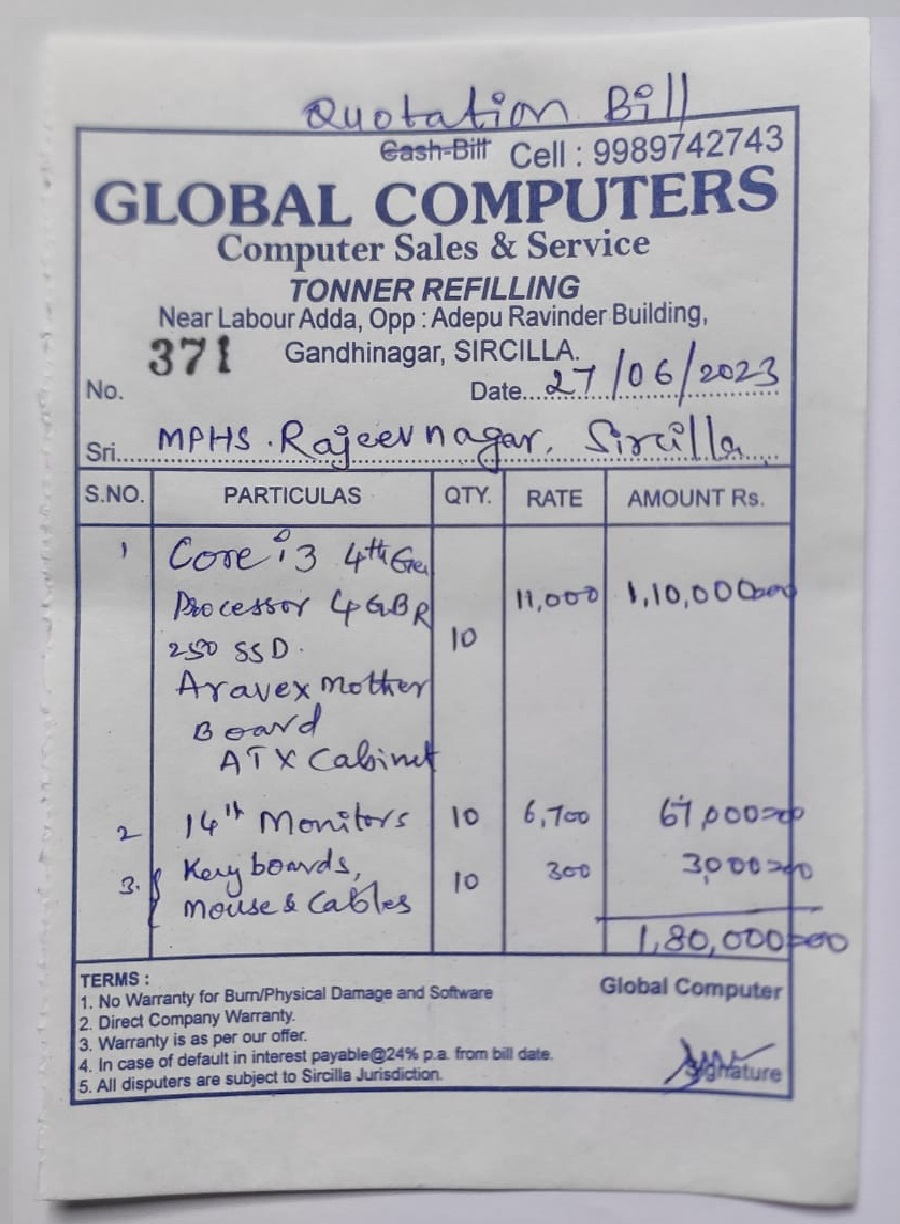 Quotation Bill
Cash-Bill Cell : 9989742743
GLOBAL COMPUTERS
Computer Sales & Service
TONNER REFILLING
Near Labour Adda, Opp : Adepu Ravinder Building,
371 Gandhinagar, SIRCILLA.
No. Date 27/06/2023
Sri MPHS. Rajeev nagar, Sircilla
S.NO. PARTICULAS QTY. RATE AMOUNT Rs.
1 Core i3 4th Gen
Processor 4GB R 11,000 1,10,000=00
250 SSD. 10
Aravex mother
Board
ATX Cabinet
2 14th Monitors 10 6,700 67,000=00
3. Key boards, 10 300 3,000=00
Mouse & Cables
1,80,000=00
TERMS :
1. No Warranty for Burn/Physical Damage and Software
2. Direct Company Warranty.
3. Warranty is as per our offer.
4. In case of default in interest payable@24% p.a. from bill date.
5. All disputers are subject to Sircilla Jurisdiction.
Global Computer
Signature